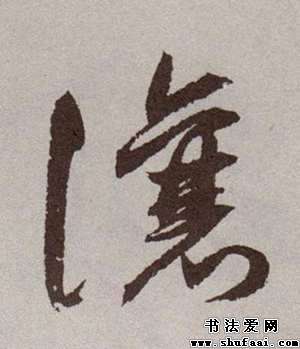 讓
书法爱网
www.shufaai.com